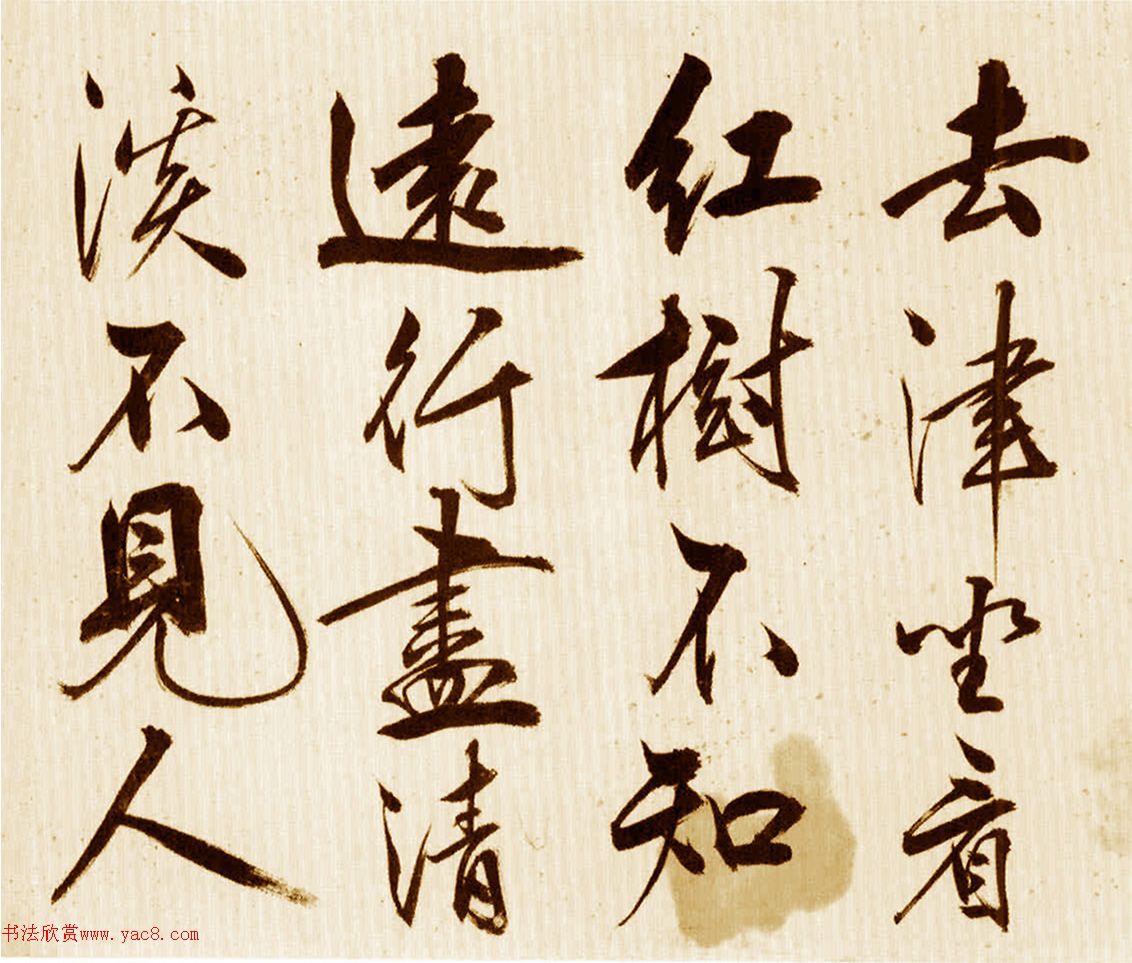 去津坐看
紅樹不知
遠行盡清
溪不見人
书法欣赏www.yac8.com